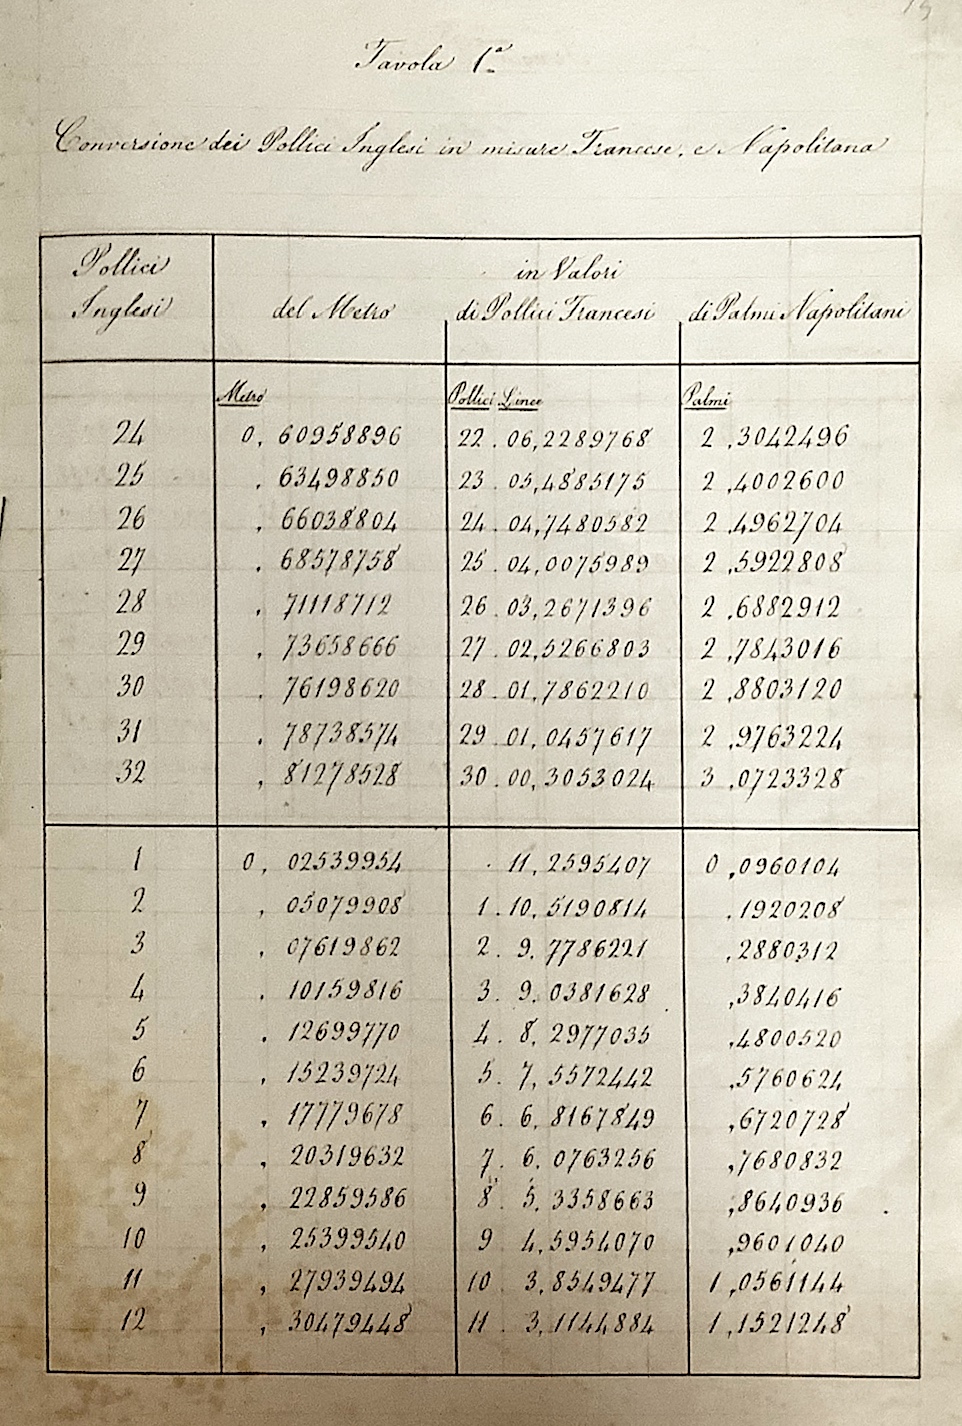 Tavola 1ª
Conversione dei Pollici Inglesi in misure Francese, e Napolitana
Pollici Inglesi in Valori
del Metro di Pollici Francesi di Palmi Napolitani
Metro Pollici Linee Palmi
24 0, 60958896 22 . 06,2289768 2 ,3042496
25 , 63498850 23 . 05,4885175 2 ,4002600
26 , 66038804 24 . 04,7480582 2 ,4962704
27 , 68578758 25 . 04,0075989 2 ,5922808
28 , 71118712 26 . 03,2671396 2 ,6882912
29 , 73658666 27 . 02,5266803 2 ,7843016
30 , 76198620 28 . 01,7862210 2 ,8803120
31 , 78738574 29 . 01,0457617 2 ,9763224
32 , 81278528 30 . 00,3053024 3 ,0723328
1 0, 02539954 . 11, 2595407 0 ,0960104
2 , 05079908 1 . 10, 5190814 ,1920208
3 , 07619862 2 . 9, 7786221 ,2880312
4 , 10159816 3 . 9, 0381628 ,3840416
5 , 12699770 4 . 8, 2977035 ,4800520
6 , 15239724 5 . 7, 5572442 ,5760624
7 , 17779678 6 . 6, 8167849 ,6720728
8 , 20319632 7 . 6, 0763256 ,7680832
9 , 22859586 8 . 5, 3358663 ,8640936
10 , 25399540 9 4,5954070 ,9601040
11 , 27939494 10 . 3,8549477 1 ,0561144
12 , 30479448 11 . 3,1144884 1 ,1521248